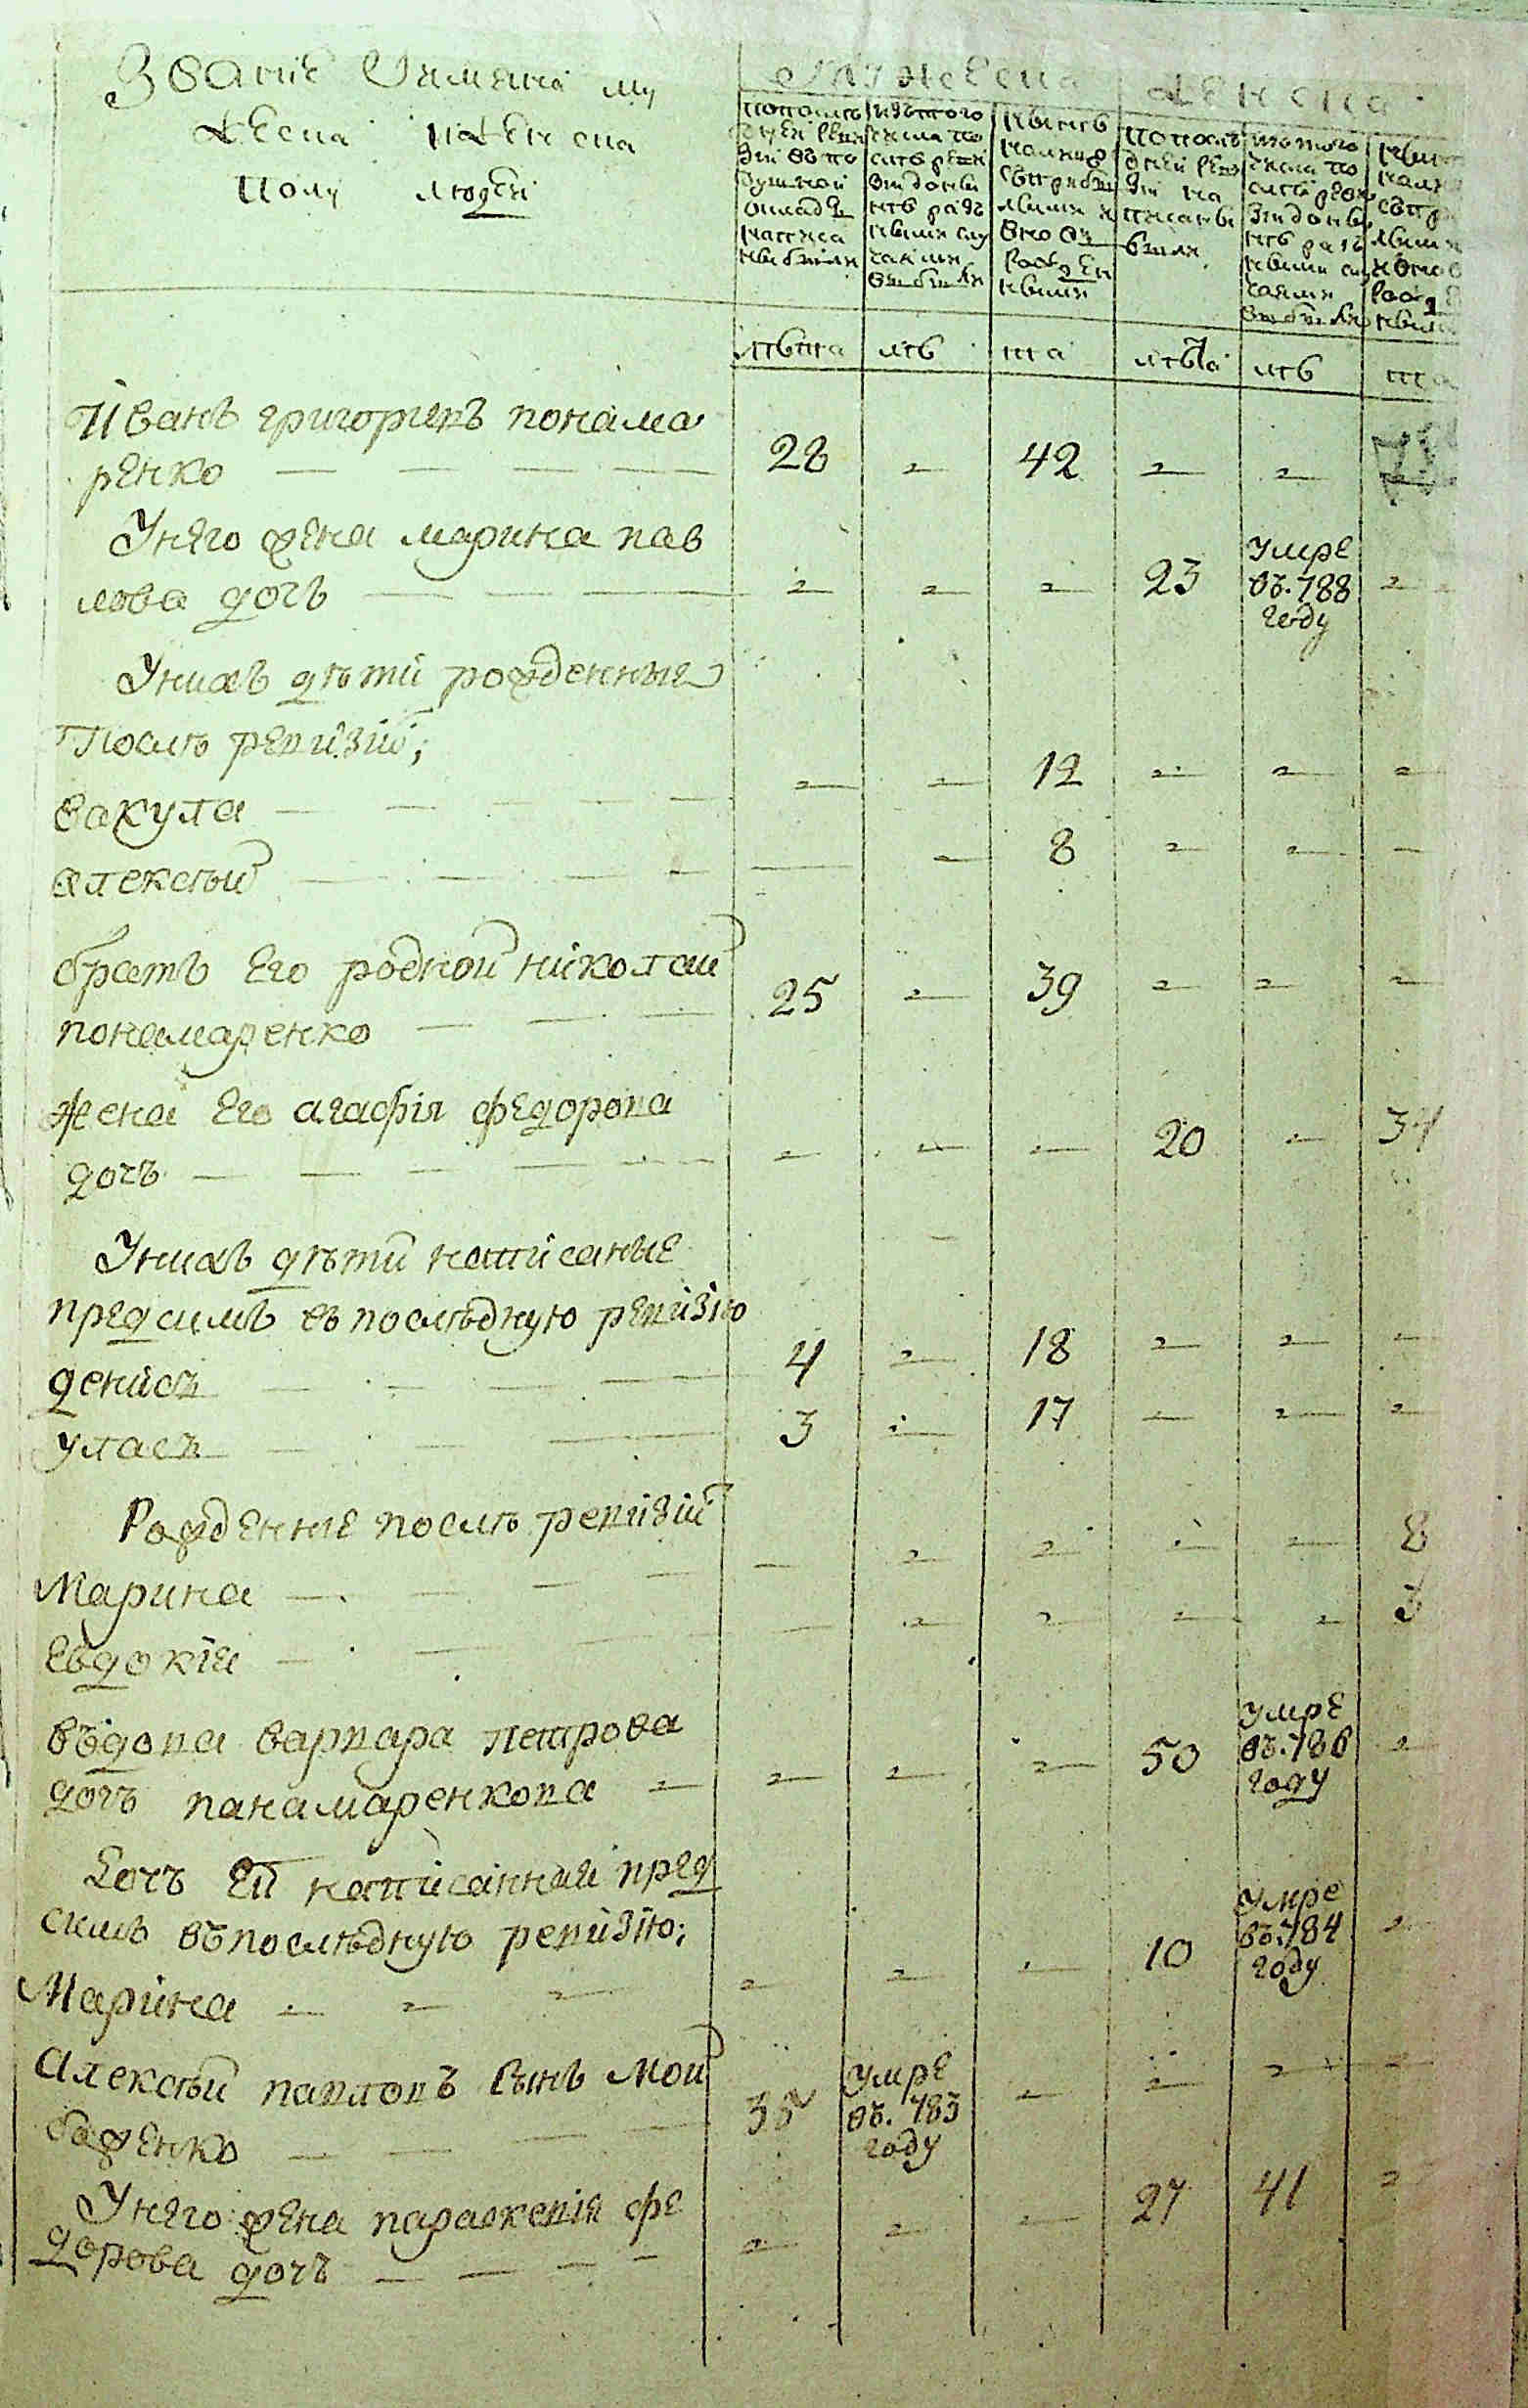 Званіе Иимяна му
жеска иженска
полу людей
Мужеска
Женска
попослѣ
дней реви
зіи въ по
душной
окладъ
написа
ны были
изътого
числа по
слѣ реви
зіи донын
нѣ разъ
ными слу
чаями
выбыли
нынѣ
налицо
съприбы
лыми и
вновь
рожден
ными
попослѣ
дней реви
зіи на
писаны
были
изтого
числа по
слѣ реви
зіи донын
нѣ разъ
ными слу
чаями
выбыли
лѣта лѣ та лѣта лѣ та
Иванъ григориевъ понама
ренко 28 42
Унего жена марина пав
лова дочь 23 умре
въ.788
году
Унихъ дѣти рожденныя
Послѣ ревизіи;
вакула 12
алексѣй 8
братъ Его родной николай
понамаренко 25 39
жена Его агафія федорова
дочь 20 34
Унихъ дѣти написаные
предсимъ въ послѣдную ревизію
денисъ 4 18
уласъ 3 17
Рожденные послѣ ревизіи
Марина 8
Евдокія 3
въдова варвара петрова
дочь панамаренкова 50 умре
въ.786
году
Дочь Ей написанная пред
симъ въпослѣдную ревизію;
Марина 10 умре
въ.784
году
Алексѣй павловъ сынъ Мой
баженко 35 умре
въ.783
году
Унего жена параскевія фе
дорова дочь 27 41